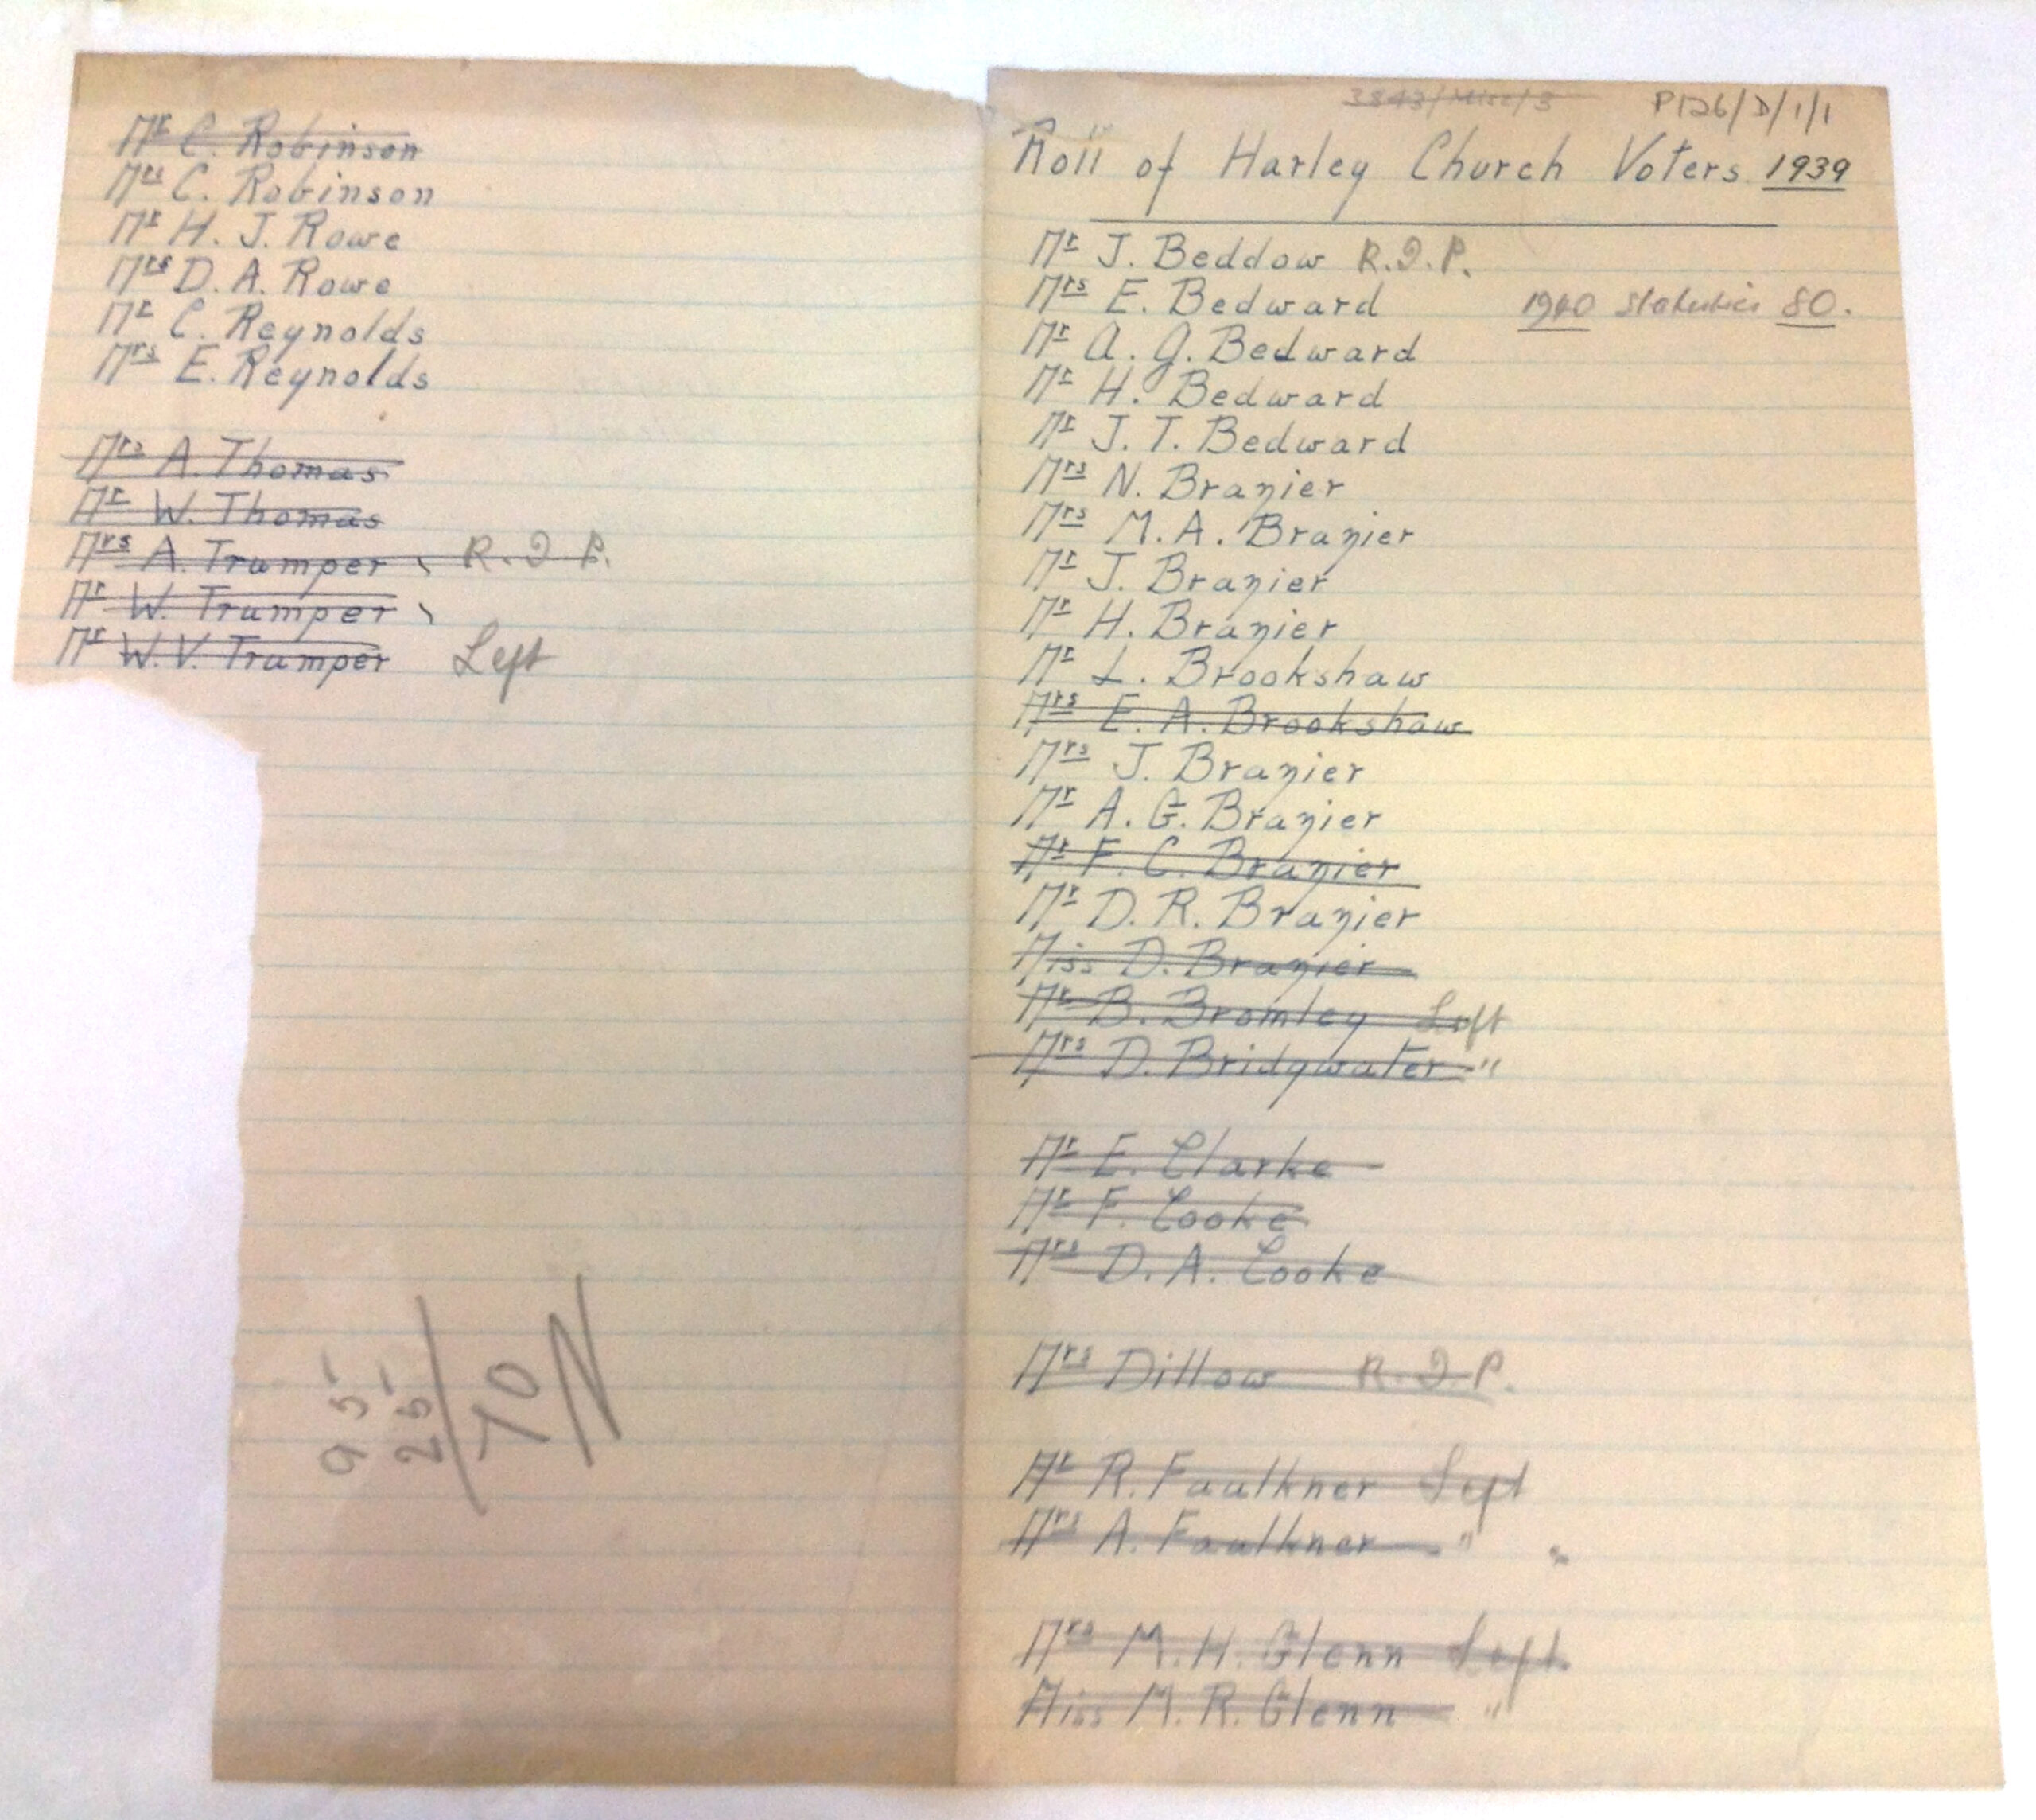 Mr C. Robinson
Mrs C. Robinson
Mr H. J. Rowe
Mrs D. A. Rowe
Mr C. Reynolds
Mrs E. Reynolds
Mrs A. Thomas
Mr W. Thomas
Mrs A. Trumper R.I.P.
Mr W. Trumper
Mr W. V. Trumper Left
95
25
70
N
3843/Misc/3 P126/D/1/1
Roll of Harley Church Voters 1939
Mr J. Beddow R.I.P.
Mrs E. Bedward 1940 statistics 80.
Mr A. G. Bedward
Mr H. Bedward
Mr J. T. Bedward
Mrs N. Brazier
Mrs M. A. Brazier
Mr J. Brazier
Mr H. Brazier
Mr L. Brookshaw
Mrs E. A. Brookshaw
Mrs J. Brazier
Mr A. G. Brazier
Mr F. C. Brazier
Mr D. R. Brazier
Miss D. Brazier
Mr B. Bromley Left
Mrs D. Bridgwater "
Mr E. Clarke
Mr F. Cooke
Mrs D. A. Cooke
Mrs Dillow R.I.P.
Mr R. Faulkner Left
Mrs A. Faulkner "
Mrs M. H. Glenn Left.
Miss M. R. Glenn "